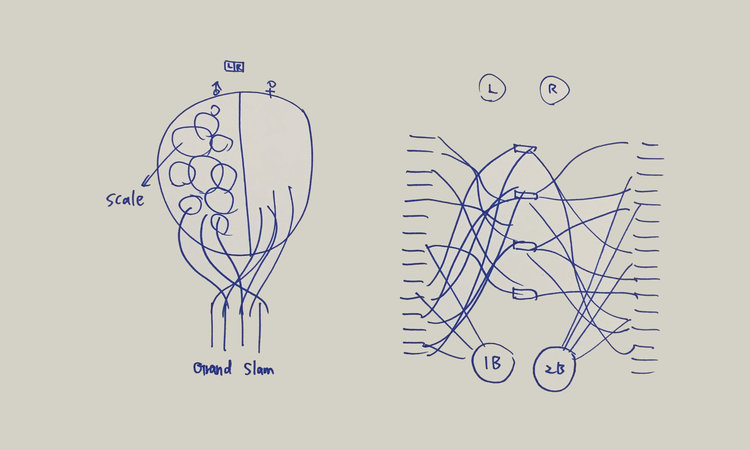 L R
♂ ♀
scale
Grand Slam
L R
1B 2B